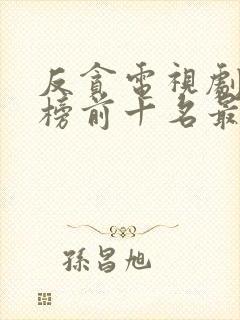 反貪電視劇
榜前十名最
孫昌旭